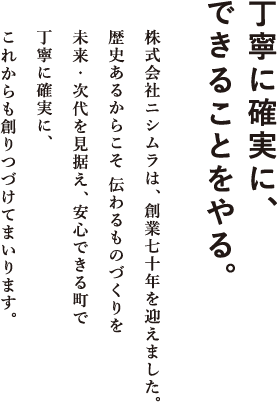 丁寧に確実に、
できることをやる。
株式会社ニシムラは、創業七十年を迎えました。
歴史あるからこそ 伝わるものづくりを
未来・次代を見据え、安心できる町で
丁寧に確実に、
これからも創りつづけてまいります。